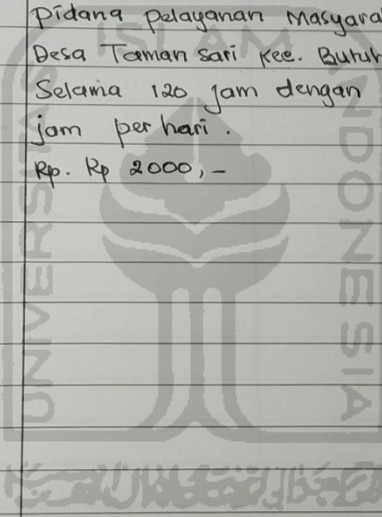 Pidana Pelayanan Masyara
Desa Taman sari Kec. Buruh
Selama 120 jam dengan
jam per hari.
Rp. Rp 2000,-
ISLAM
UNIVERSITAS
INDONESIA